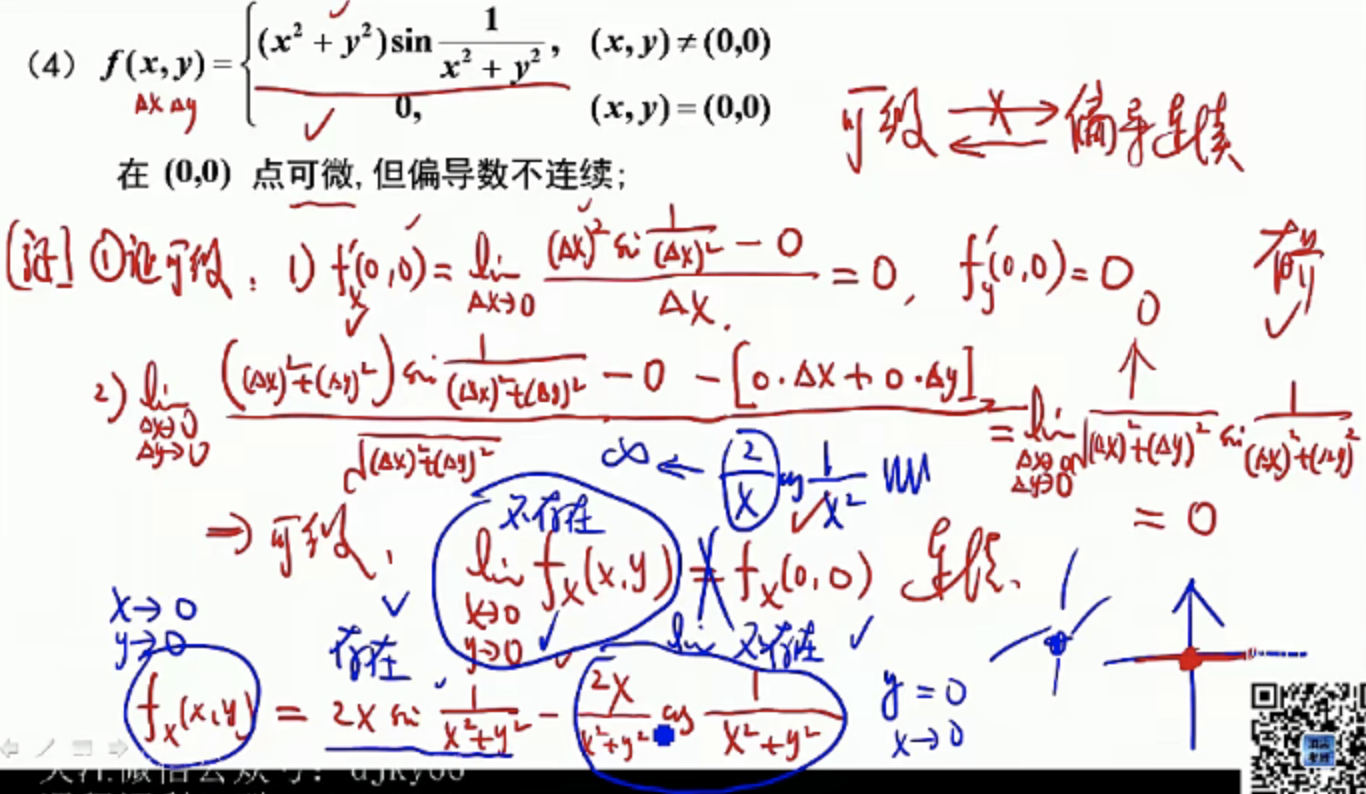 (4) f(x,y) = { (x² + y²) sin 1/(x² + y²), (x,y) ≠ (0,0)
0, (x,y) = (0,0)
Δx Δy
在 (0,0) 点可微, 但偏导数不连续;
可微 ⇄ 偏导连续
[证] ① 证可微: 1) f'x(0,0) = lim Δx→0 ((Δx)² sin 1/(Δx)² − 0)/Δx = 0, f'y(0,0) = 0
0
2) lim Δx→0 Δy→0 (((Δx)²+(Δy)²) sin 1/((Δx)²+(Δy)²) − 0 − [0·Δx + 0·Δy])/√((Δx)²+(Δy)²) = lim Δx→0 Δy→0 √((Δx)²+(Δy)²) sin 1/((Δx)²+(Δy)²)
= 0
∞ ← 2/x cos 1/x²
⇒ 可微. 不存在
lim x→0 y→0 fx(x,y) = fx(0,0) 连续.
x→0
y→0
存在
lim 不存在
fx(x,y) = 2x sin 1/(x²+y²) − 2x/(x²+y²) cos 1/(x²+y²)
y = 0
x→0